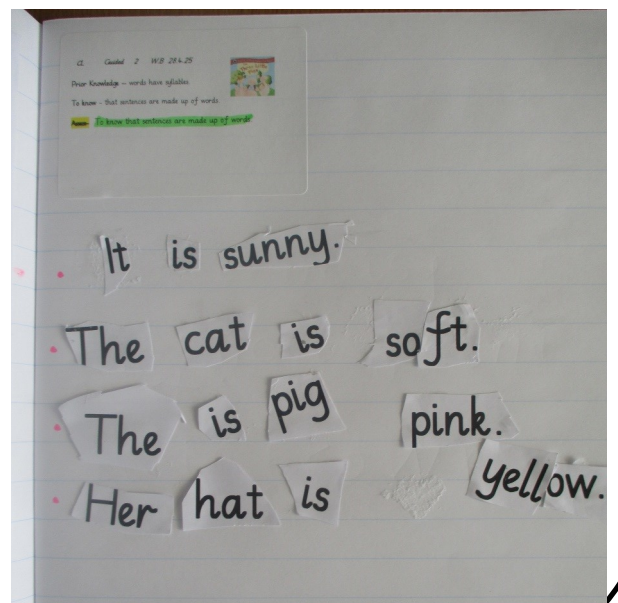 Guided 2 W.B 28.4.25
Prior Knowledge – words have syllables
To know – that sentences are made up of words
To know that sentences are made up of words
It is sunny.
The cat is soft.
The is pig pink.
Her hat is yellow.